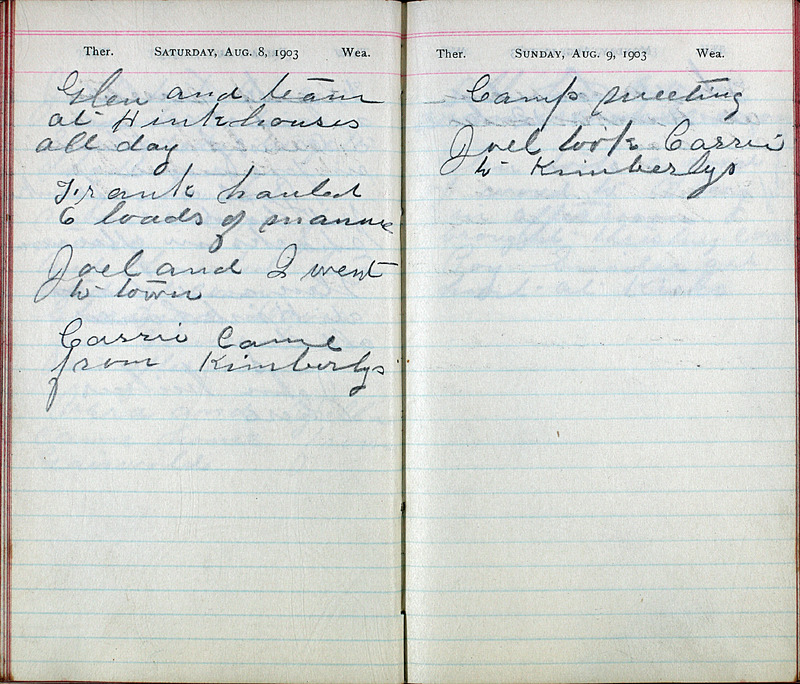 Ther. SATURDAY, AUG. 8, 1903 Wea.
Glen and team
at Hinkhouses
all day
Frank hauled
6 loads of manure
Joel and I went
to town
Carrie Came
from Kimberlys
Ther. SUNDAY, AUG. 9, 1903 Wea.
Camp meeting
Joel took Carrie
to Kimberlys